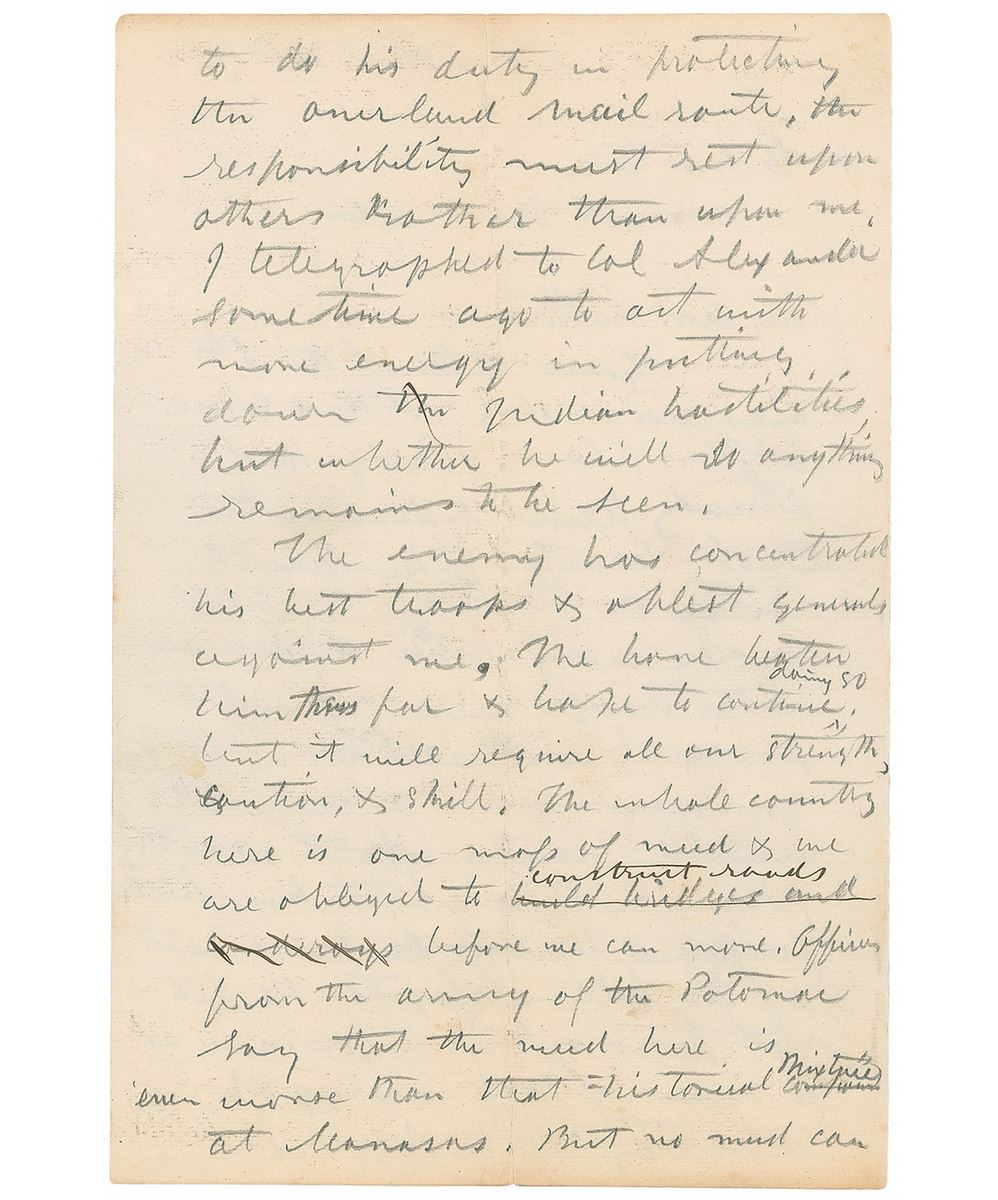 to do his duty in protecting
the overland mail route, the
responsibility must rest upon
others rather than upon me.
I telegraphed to Col Alexander
sometime ago to act with
more energy in putting
down the Indian hostilities
but whether he will do anything
remains to be seen.
The enemy has concentrated
his best troops & ablest generals
against me. We have beaten
doing so
him thus far & hope to continue,
but it will require all our strength,
caution, & skill. The whole country
here is one mass of mud & we
construct roads
are obliged to build bridges and
before we can move. Officers
from the army of the Potomac
say that the mud here is
Mixture
even worse than that historical compound
at Manasas. But no mud can